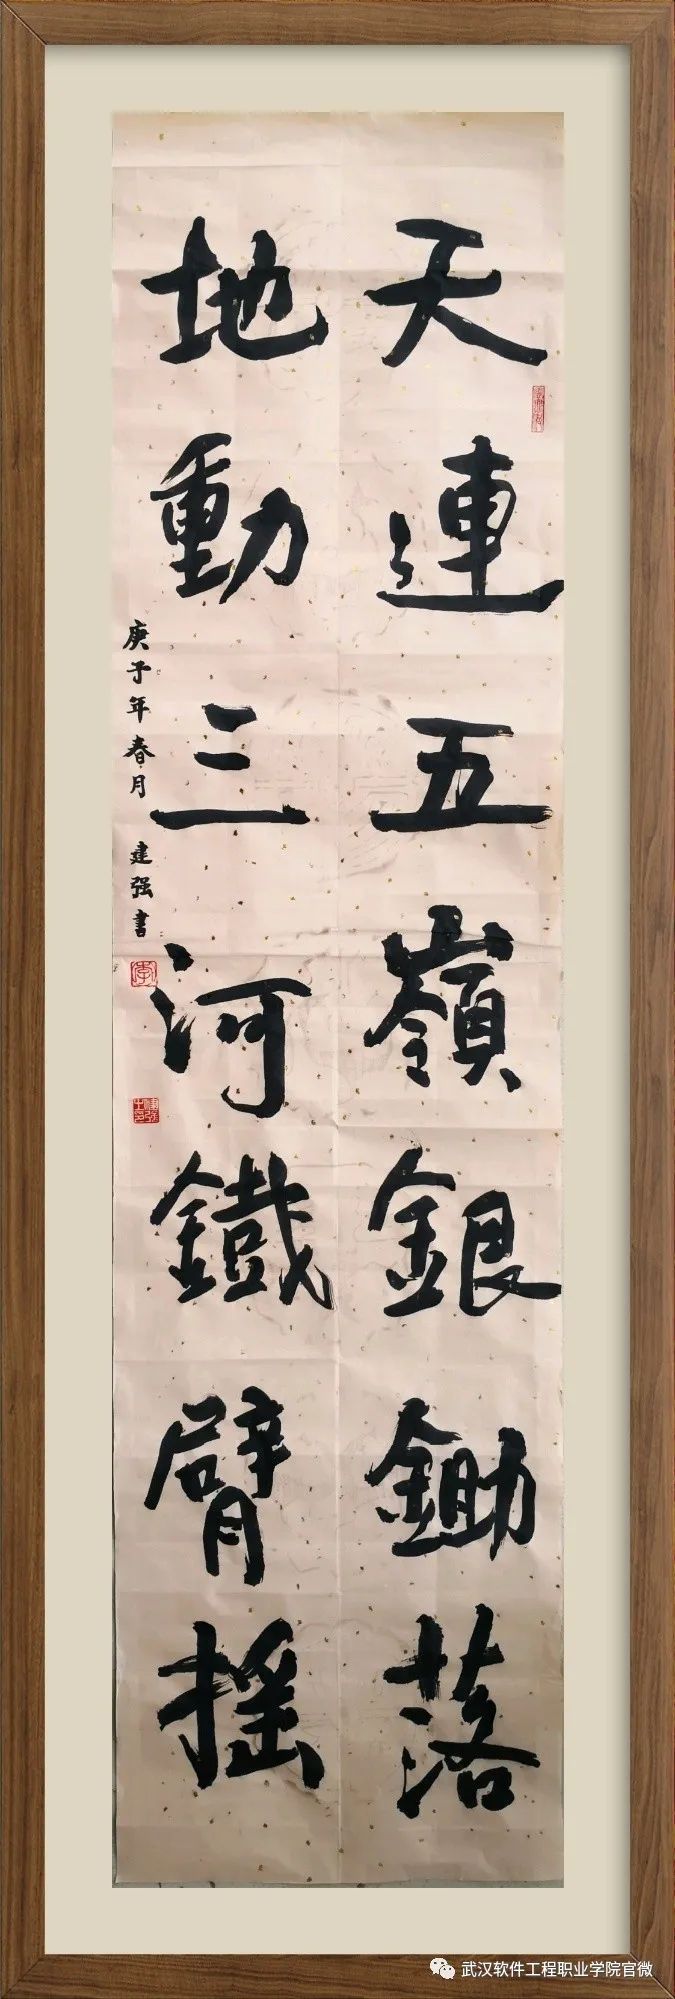 天連五嶺銀鋤落
地動三河鐵臂摇
庚子年春月 建强書
武汉软件工程职业学院官微